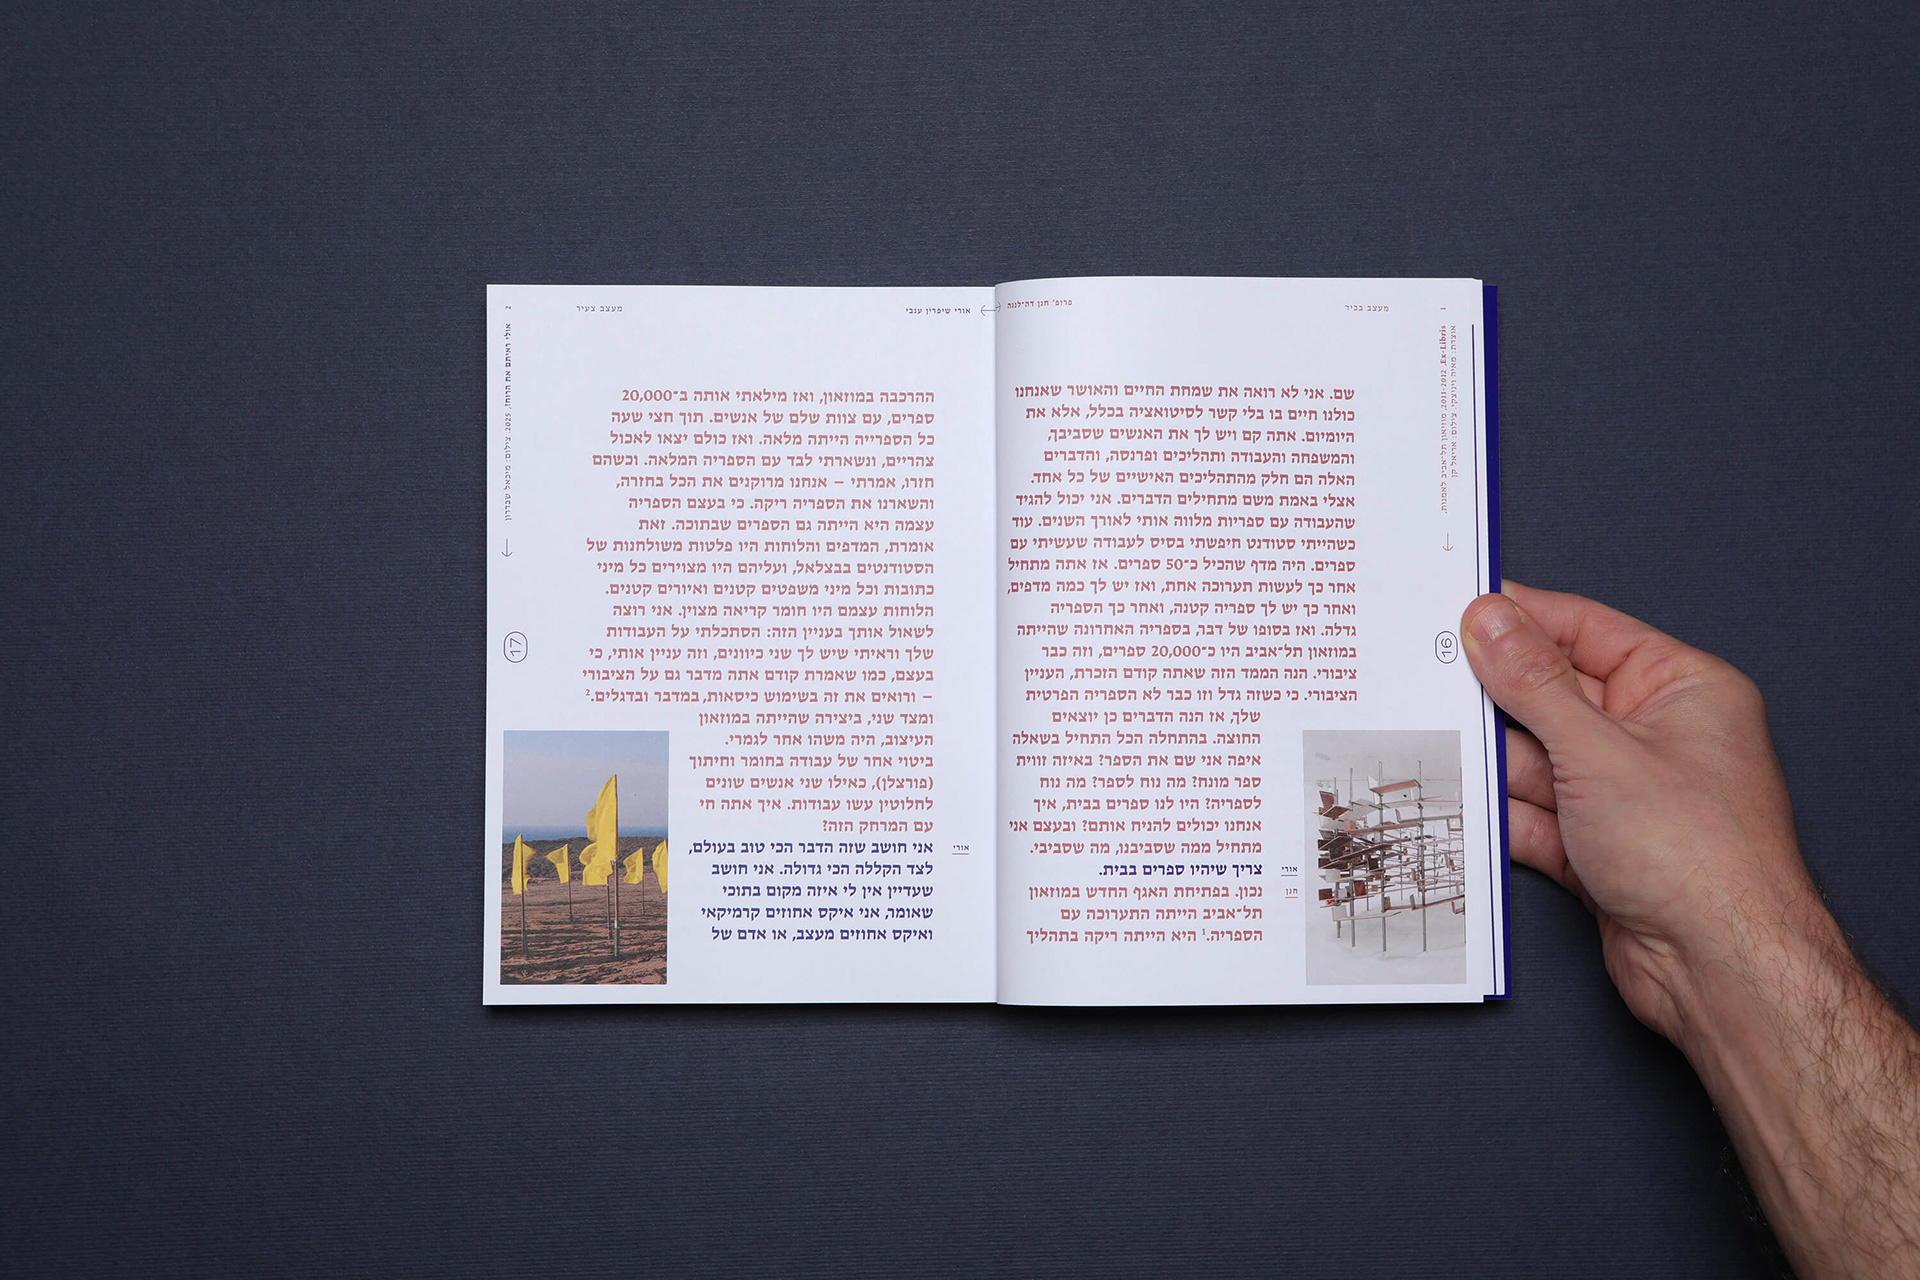 מעצב בכיר
פרופ׳ חנן דה־לנגה
1
Ex-Libris, 2011-2012, מוזיאון תל־אביב לאמנות.
אוצרת: מאירה
צילום:
שם. אני לא רואה את שמחת החיים והאושר שאנחנו
כולנו חיים בו בלי קשר לסיטואציה בכלל, אלא את
היומיום. אתה קם ויש לך את האנשים שסביבך,
והמשפחה והעבודה ותהליכים ופרנסה, והדברים
האלה הם חלק מהתהליכים האישיים של כל אחד.
אצלי באמת משם מתחילים הדברים. אני יכול להגיד
שהעבודה עם ספריות מלווה אותי לאורך השנים. עוד
כשהייתי סטודנט חיפשתי בסיס לעבודה שעשיתי עם
ספרים. היה מדף שהכיל כ־50 ספרים. אז אתה מתחיל
אחר כך לעשות תערוכה אחת, ואז יש לך כמה מדפים,
ואחר כך יש לך ספריה קטנה, ואחר כך הספריה
גדלה. ואז בסופו של דבר, בספריה האחרונה שהייתה
במוזאון תל־אביב היו כ־20,000 ספרים, וזה כבר
ציבורי. הנה הממד הזה שאתה קודם הזכרת, העניין
הציבורי. כי כשזה גדל וזו כבר לא הספריה הפרטית
שלך, אז הנה הדברים כן יוצאים
החוצה. בהתחלה הכל התחיל בשאלה
איפה אני שם את הספר? באיזה זווית
ספר מונח? מה נוח לספר? מה נוח
לספריה? היו לנו ספרים בבית, איך
אנחנו יכולים להניח אותם? ובעצם אני
מתחיל ממה שסביבנו, מה שסביבי.
אורי
צריך שיהיו ספרים בבית.
חנן
נכון. בפתיחת האגף החדש במוזאון
תל־אביב הייתה התערוכה עם
הספריה.¹ היא הייתה ריקה בתהליך
16
אורי שיפרין ענבי
מעצב צעיר
2
אולי ראיתם את הרוח?, 2025. צילום: מיכאל שבדרון
ההרכבה במוזאון, ואז מילאתי אותה ב־20,000
ספרים, עם צוות שלם של אנשים. תוך חצי שעה
כל הספרייה הייתה מלאה. ואז כולם יצאו לאכול
צהריים, ונשארתי לבד עם הספריה המלאה. וכשהם
חזרו, אמרתי – אנחנו מרוקנים את הכל בחזרה,
והשארנו את הספריה ריקה. כי בעצם הספריה
עצמה היא הייתה גם הספרים שבתוכה. זאת
אומרת, המדפים והלוחות היו פלטות משולחנות של
הסטודנטים בבצלאל, ועליהם היו מצוירים כל מיני
כתובות וכל מיני משפטים קטנים ואיורים קטנים.
הלוחות עצמם היו חומר קריאה מצוין. אני רוצה
לשאול אותך בעניין הזה: הסתכלתי על העבודות
שלך וראיתי שיש לך שני כיוונים, וזה עניין אותי, כי
בעצם, כמו שאמרת קודם אתה מדבר גם על הציבורי
– ורואים את זה בשימוש כיסאות, במדבר ובדגלים.²
ומצד שני, ביצירה שהייתה במוזאון
העיצוב, היה משהו אחר לגמרי.
ביטוי אחר של עבודה בחומר וחיתוך
(פורצלן), כאילו שני אנשים שונים
לחלוטין עשו עבודות. איך אתה חי
עם המרחק הזה?
אורי
אני חושב שזה הדבר הכי טוב בעולם,
לצד הקללה הכי גדולה. אני חושב
שעדיין אין לי איזה מקום בתוכי
שאומר, אני איקס אחוזים קרמיקאי
ואיקס אחוזים מעצב, או אדם של
17